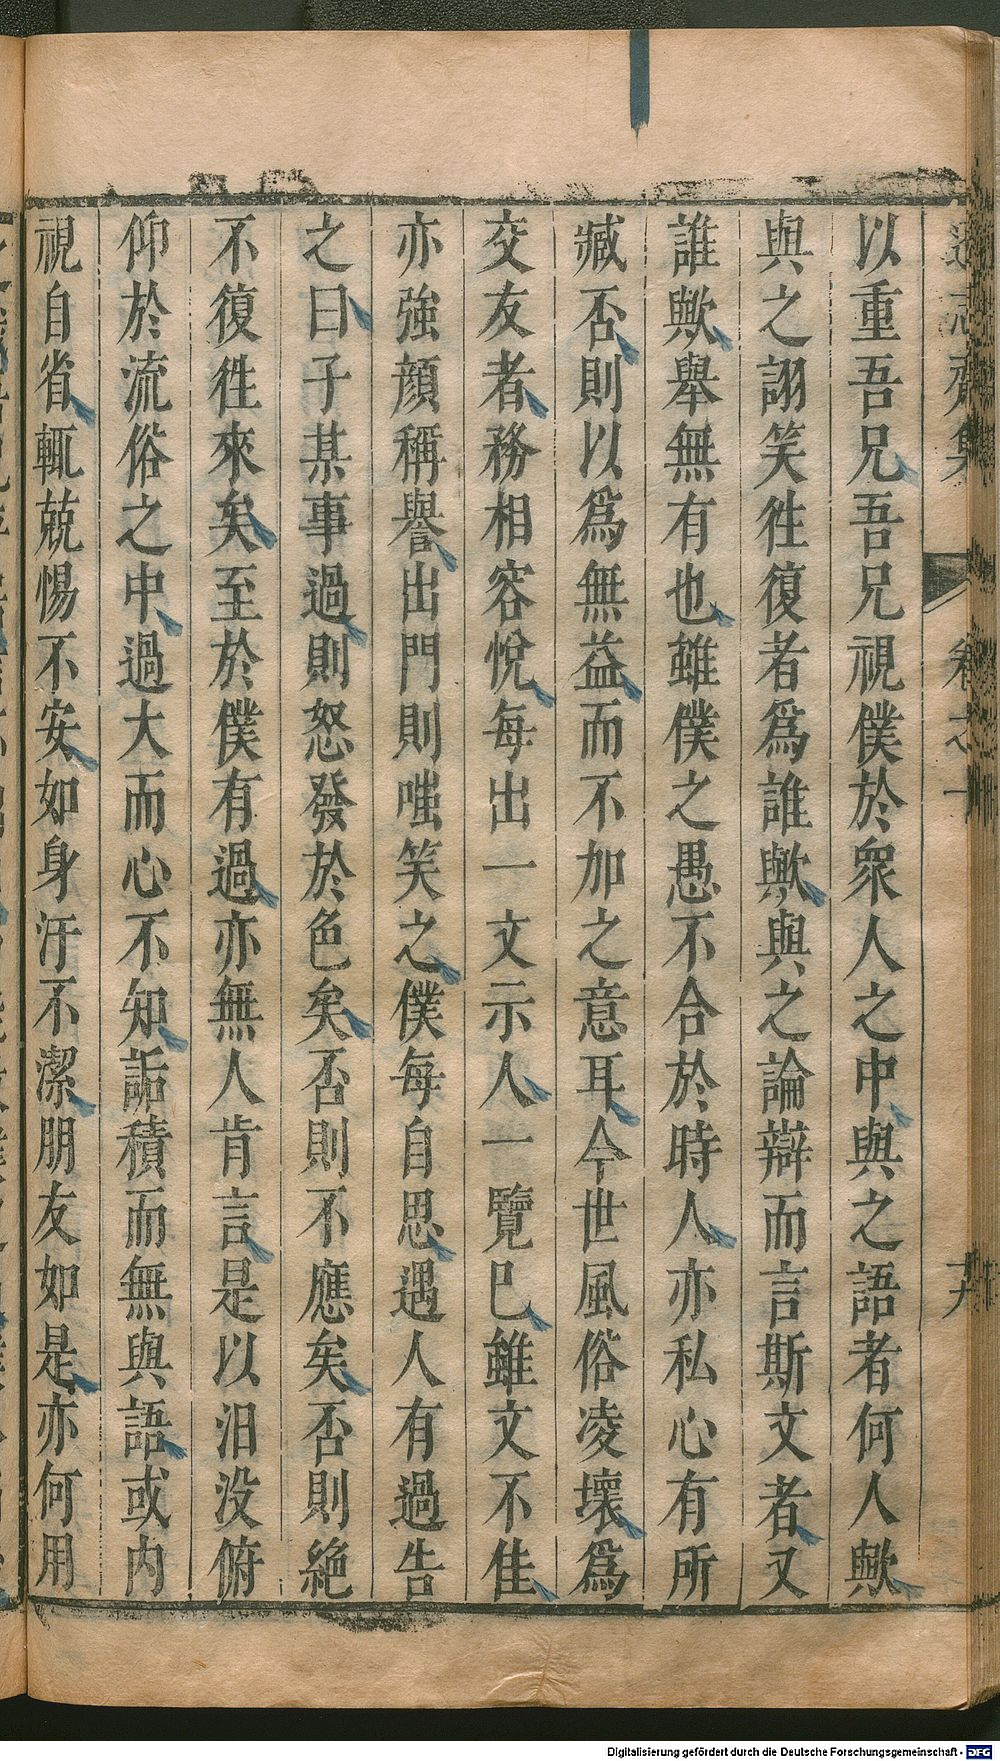 以重吾兄吾兄視僕於衆人之中與之語者何人歟
與之詡笑徃復者爲誰歟與之論辯而言斯文者又
誰歟舉無有也雖僕之愚不合於時人亦私心有所
臧否則以爲無益而不加之意耳今世風俗凌壞爲
交友者務相容悅每出一文示人一覽巳雖文不佳
亦強顔稱譽出門則嗤笑之僕每自思遇人有過告
之曰子某事過則怒發於色矣否則不應矣否則絶
不復徃來矣至於僕有過亦無人肯言是以汨没俯
仰於流俗之中過大而心不知詬積而無與語或内
視自省輒兢惕不安如身汙不潔朋友如是亦何用
卷之十
Digitalisierung gefördert durch die Deutsche Forschungsgemeinschaft - DFG